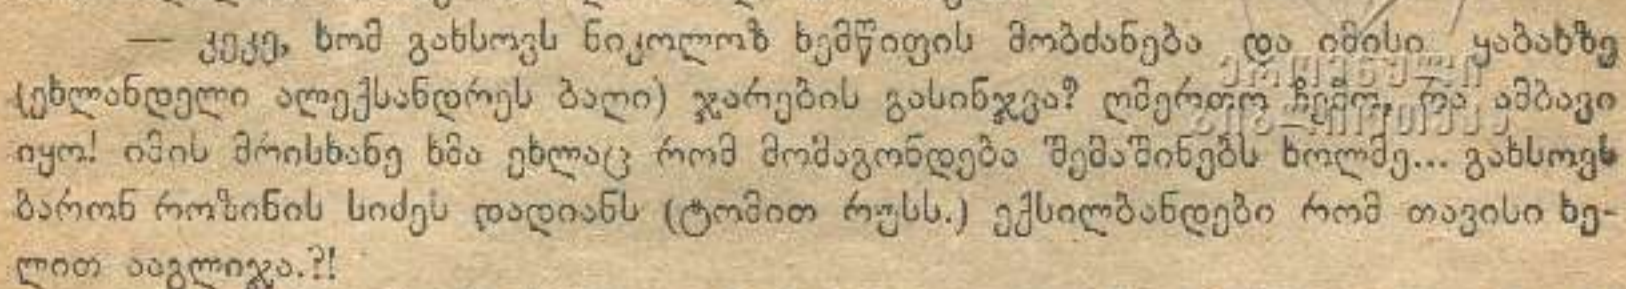 — კეკე, ხომ გახსოვს ნიკოლოზ ხემწიფის მობძანება და იმისი ყაბახზე
(ეხლანდელი ალექსანდრეს ბაღი) ჯარების გასინჯვა? ღმერთო ჩემო, რა ამბავი
იყო! იმის მრისხანე ხმა ეხლაც რომ მომაგონდება შემაშინებს ხოლმე... გახსოვს
ბარონ როზინის სიძეს დადიანს (ტომით რუსს.) ექსილბანდები რომ თავისი ხე-
ლით ააგლიჯა.?!
ეროვნული
ბიბლიოთეკა